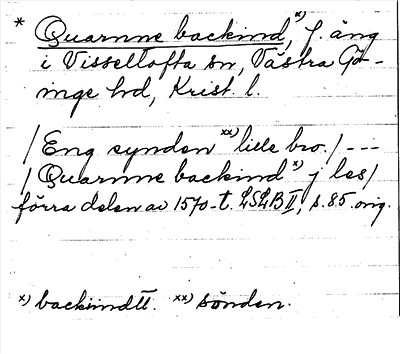 * Quarnne backind, x) f. äng
i Visseltofta sn, Västra Gö-
inge hd, Krist. l.
/Eng synden xx) lille bro./ ---
/Quarnne backind x) j les/
förra delen av 1570-t. LSLB II, s. 85. orig.
x) backiindtt. xx) sönden.